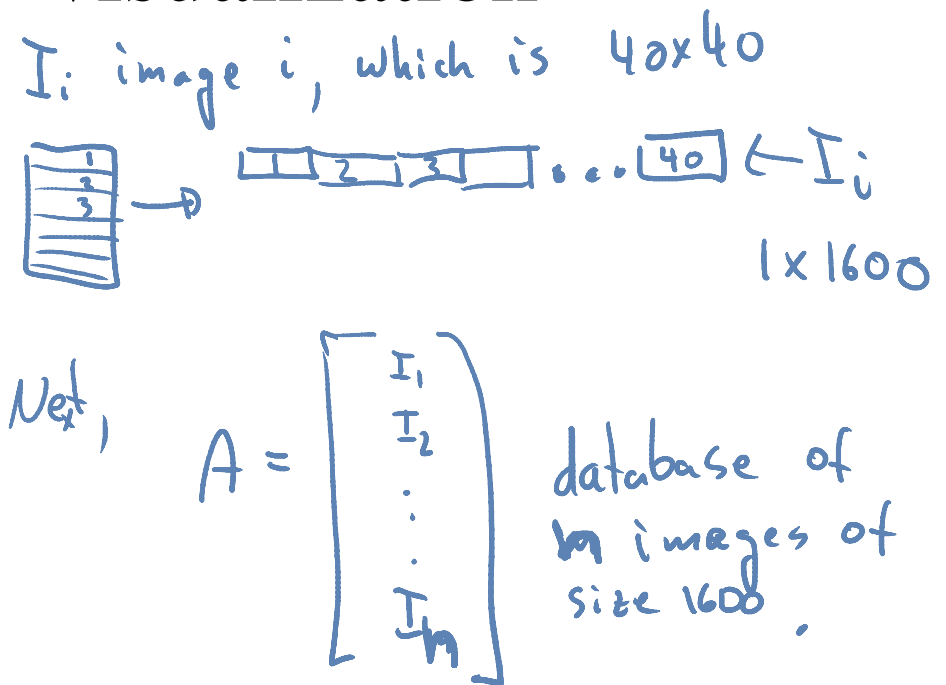 I_i image i, which is 40x40
1 2 3 ... 40 ← I_i
1
2
3
1 x 1600
Next,
A = [ I_1
I_2
.
.
.
I_m ]
database of
m images of
size 1600.